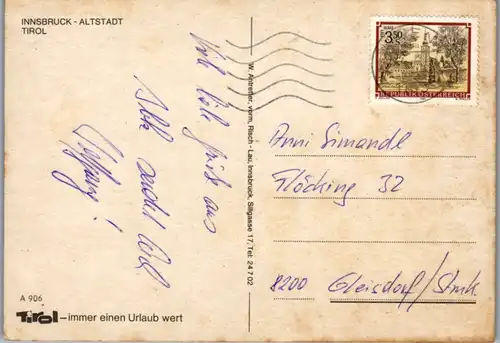 INNSBRUCK - ALTSTADT
TIROL
Viele liebe Grüße aus
sendet Wolf
W. Antretter, vorm. Risch - Lau, Innsbruck, Sillgasse 17, Tel. 24 7 02
3.50
REPUBLIK ÖSTERREICH
Anni Simandl
Flöcking 32
8200 Gleisdorf/Stmk
A 906
Tirol – immer einen Urlaub wert